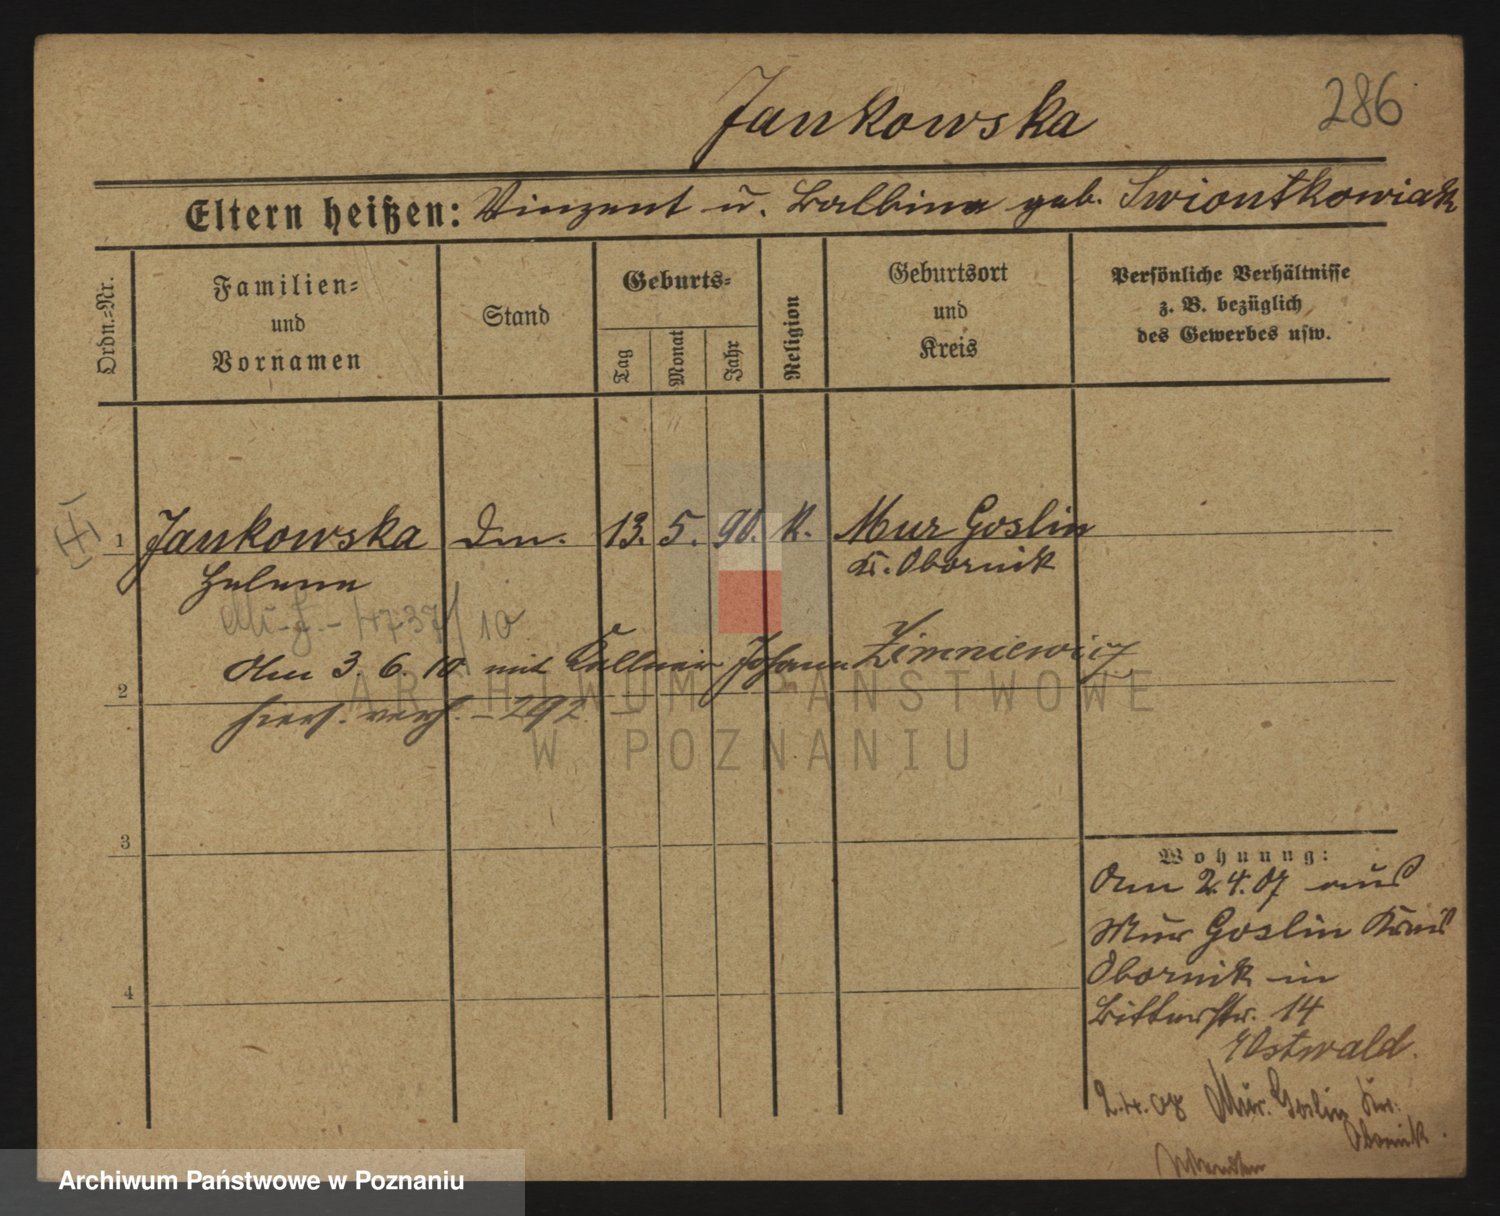 Jankowska
286
Eltern heißen: Vinzent u. Balbina geb. Swiontkowiak
Ordn.-Nr.
Familien-
und
Vornamen
Stand
Geburts-
Tag
Monat
Jahr
Religion
Geburtsort
und
Kreis
Persönliche Verhältnisse
z. B. bezüglich
des Gewerbes usw.
1 Jankowska Dm. 13. 5. 90. K. Mur Goslin
Helena Kr. Obornik
10
Am 3. 6. 10 mit Kellner Johann Zimniewicz
2
292
ARCHIWUM PAŃSTWOWE
W POZNANIU
3
4
Wohnung:
Am 2.4.07 aus
Mur Goslin Kreis
Obornik in
Bitterstr. 14
Ostwald.
2.4.08 Mur. Goslin Kr.
Obornik.
Archiwum Państwowe w Poznaniu